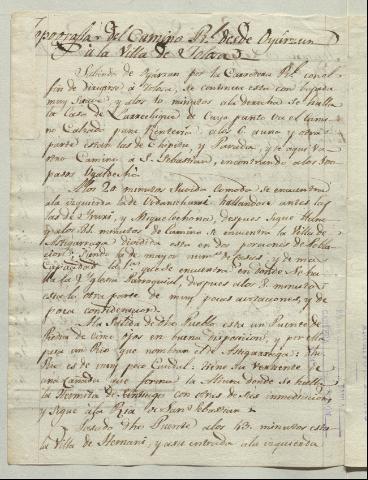 Topografia del Camino Rl. desde Oyarzun
á la Villa de Tolosa
Saliendo de Oyarzun por la Carretera Rl. con el
fin de dirigirse á Tolosa, se continua esta con bajada
muy suave, y alos 10 minutos ala derecha se halla
la Casa de Larrechigue de Cuyo punto va el cami-
no Calzada para Renteria alos 6 auno y otra
parte estan las de Chipita, y Davidia, y de aqui va
otro Camino á S. Sebastian, encontrando alos 300
pasos
Alos 20 minutos Subida comoda se encuentra
ala izquierda la de hallandose antes las
las de y despues sigue llano
y alos minutos de Camino se encuentra la Villa de
Astigarraga dividida esta en dos porciones de Pobla-
cion, Siendo la de mayor num.º de Casas, y de ma
Capacidad la 1.ª que se encuentra en donde se ha-
lla la Yglesia Parroquial, despues alos 8 minutos
esta la otra parte de muy pocas avitaciones y de
poca consideracion.
Ala Salida de dho Pueblo esta un Puente de
Piedra de cinco ojos en buena disposicion, y por ello
pasa un Rio que nombran el de Astigarraga: dho
Rio es de muy poco Caudal: tiene su vertiente de
una Cañada que forma la Altura donde se halla
la Hermita de Santiago con otras de sus inmediaciones
y sigue ála Ria de San Sebastian
Pasado dho Puente alos 43 minutos esta
la Villa de Hernani, y asu entrada ala izquierda